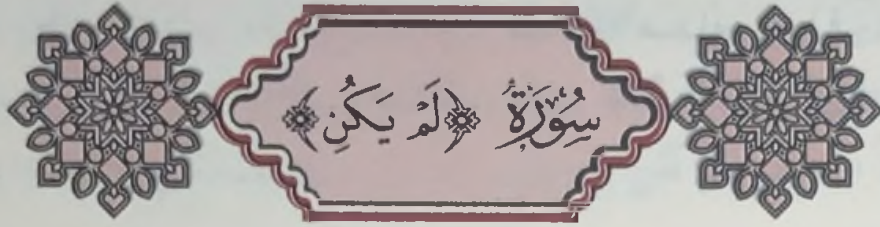 سُورَةُ ﴿لَمْ يَكُنِ﴾